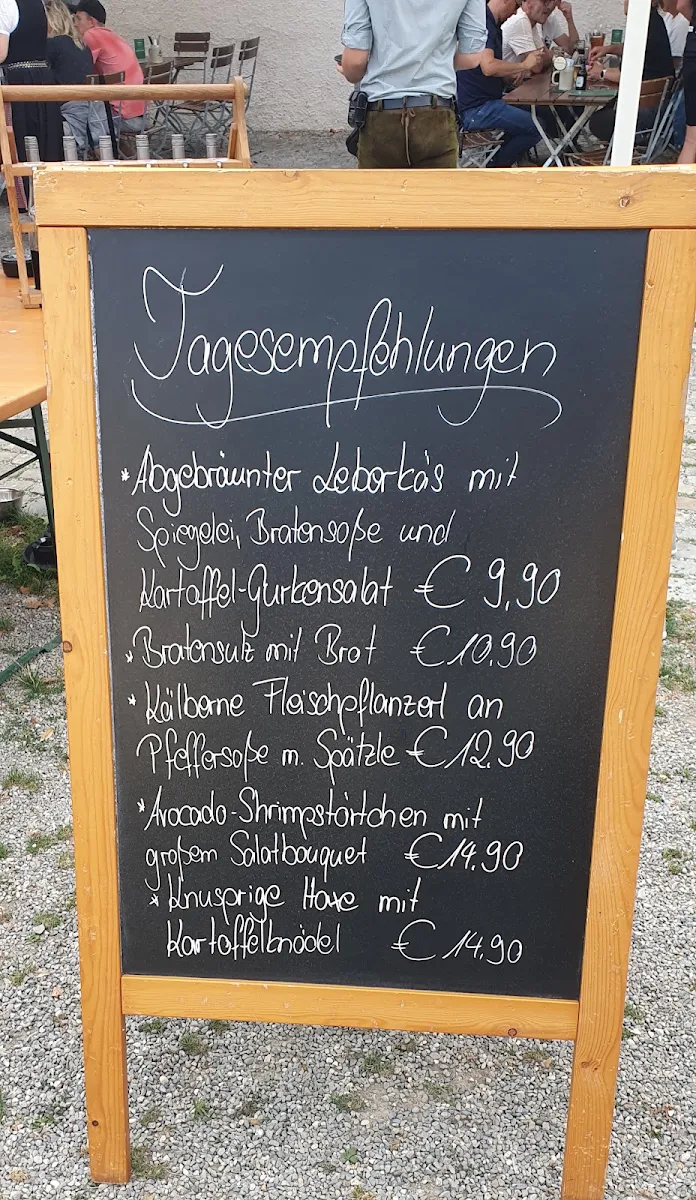 Tagesempfehlungen
* Abgebräunter Leberkäs mit
Spiegelei, Bratensoße und
Kartoffel-Gurkensalat € 9,90
* Bratensulz mit Brot € 10,90
* Kälberne Fleischpflanzerl an
Pfeffersoße m. Spätzle € 12,90
* Avocado-Shrimpstörtchen mit
großem Salatbouquet € 14,90
* Knusprige Haxe mit
Kartoffelknödel € 14,90